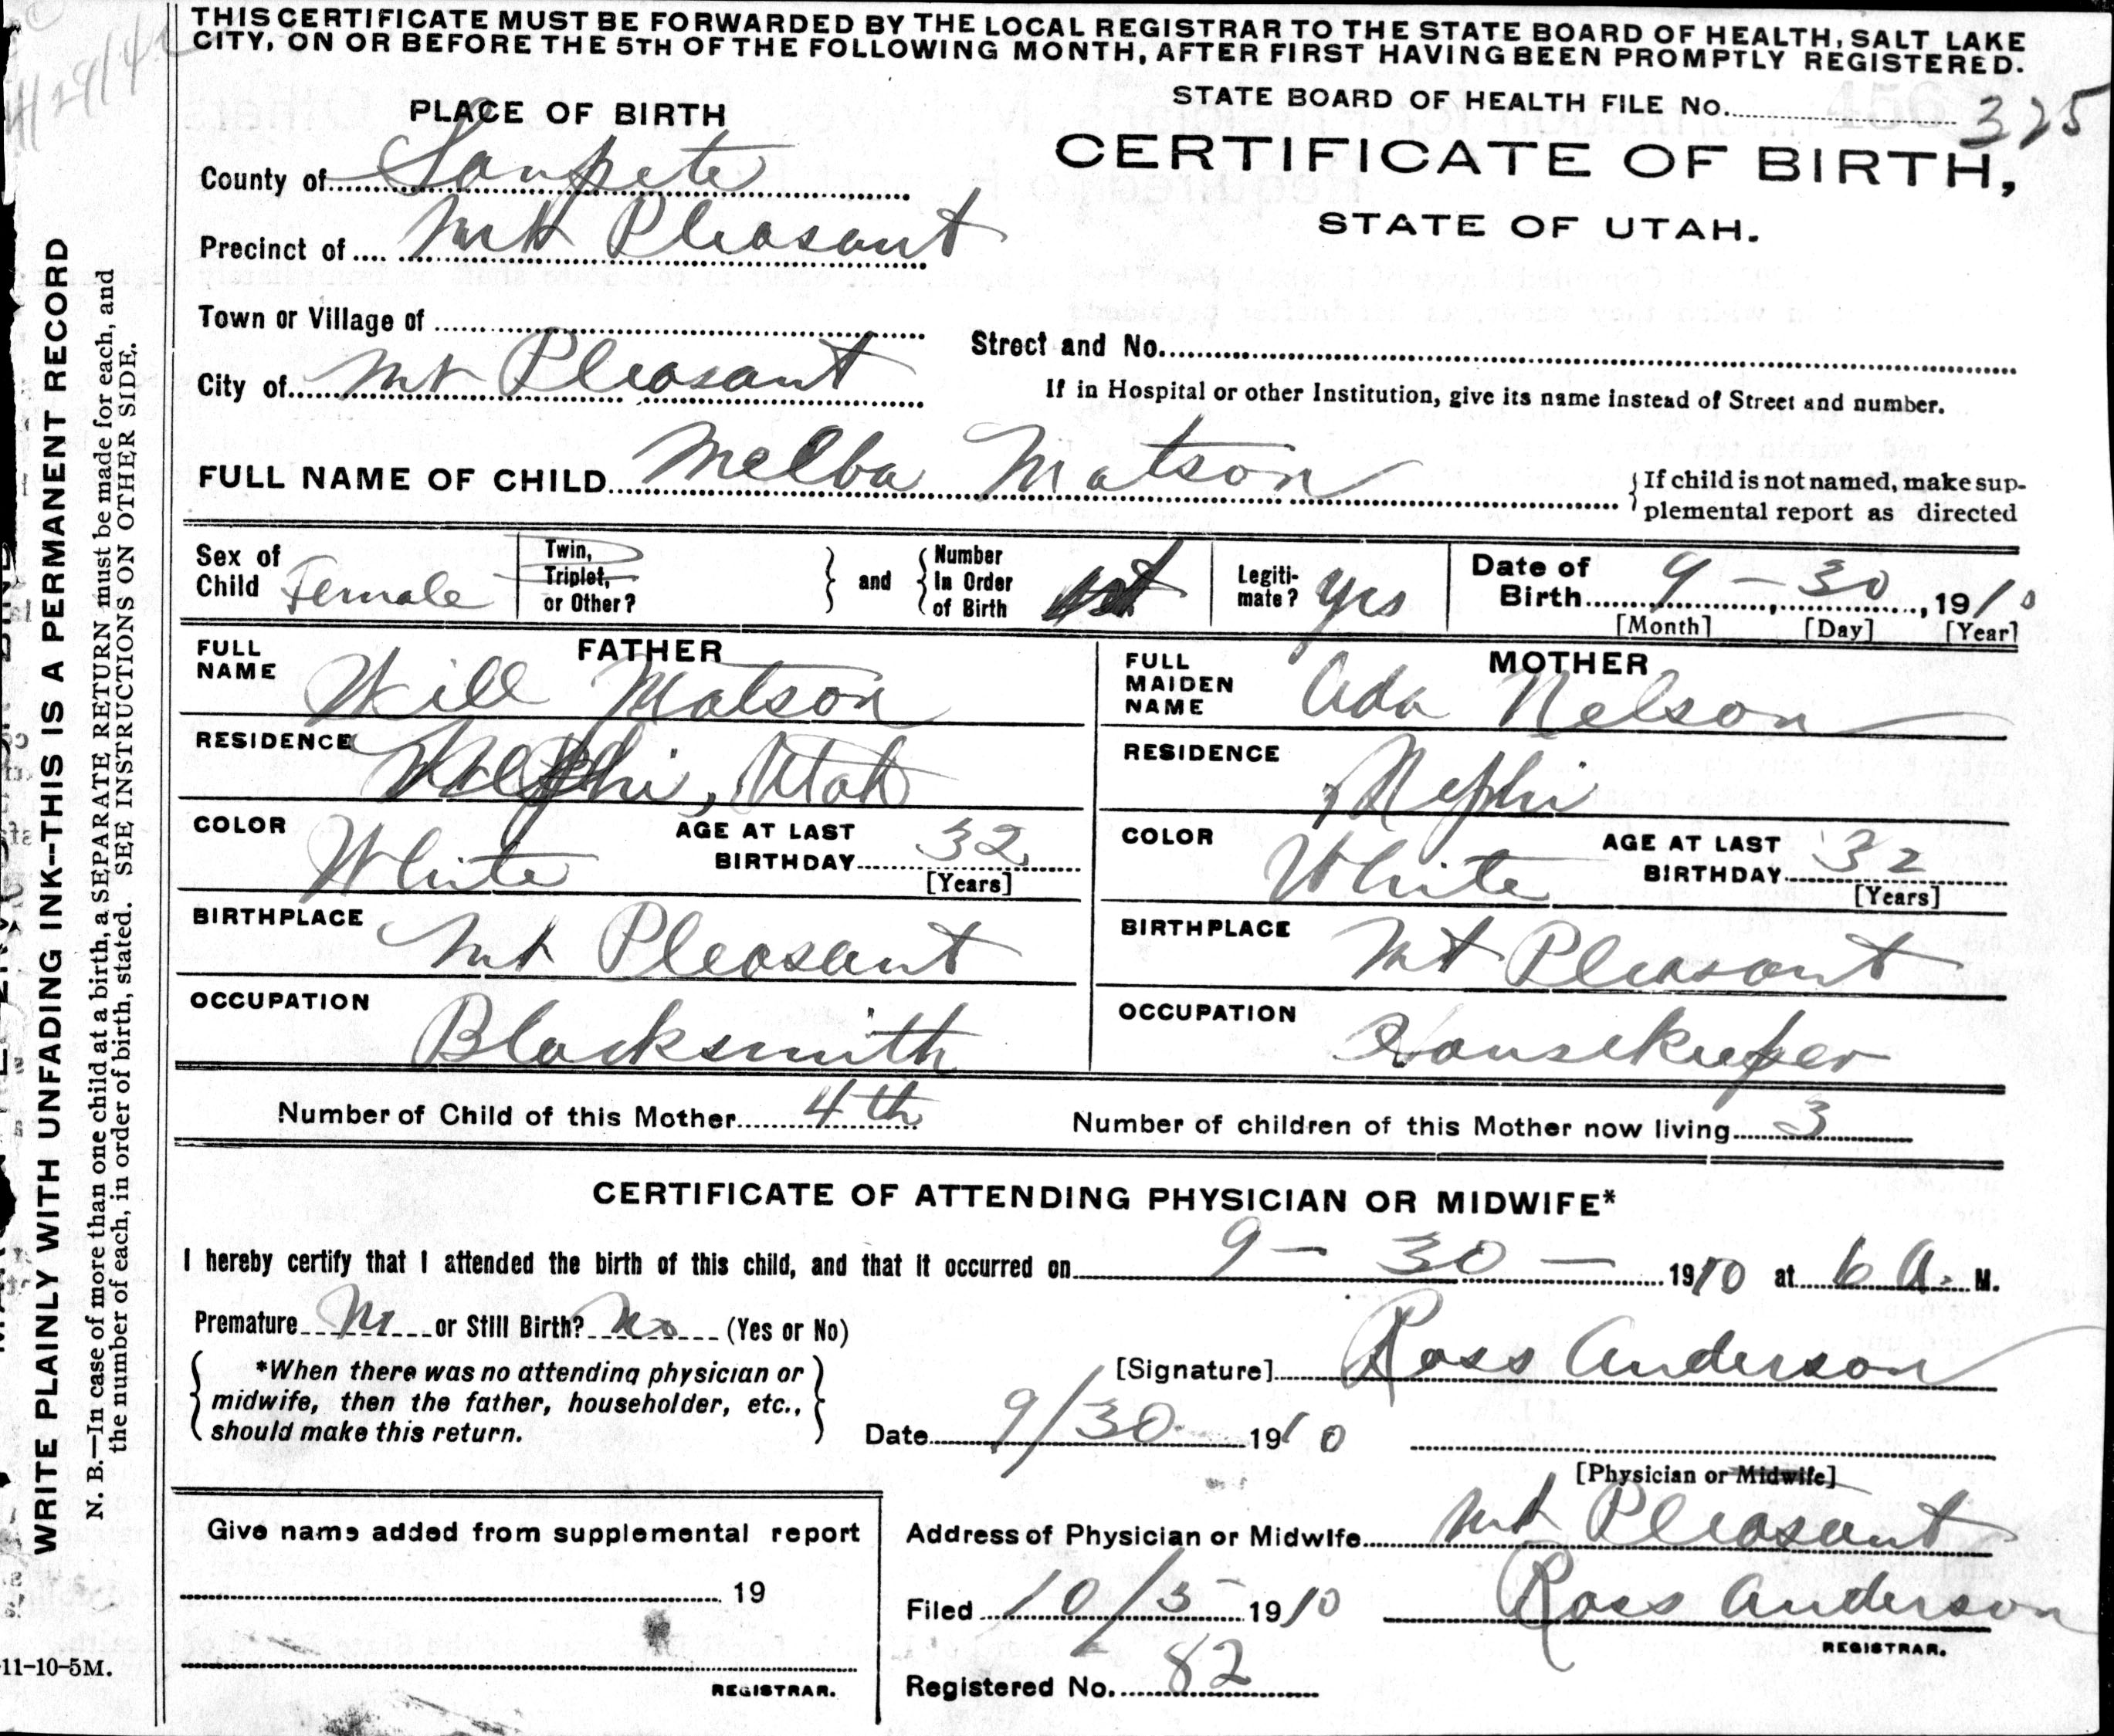 THIS CERTIFICATE MUST BE FORWARDED BY THE LOCAL REGISTRAR TO THE STATE BOARD OF HEALTH, SALT LAKE
CITY, ON OR BEFORE THE 5TH OF THE FOLLOWING MONTH, AFTER FIRST HAVING BEEN PROMPTLY REGISTERED.
STATE BOARD OF HEALTH FILE No. 325
PLACE OF BIRTH
CERTIFICATE OF BIRTH,
STATE OF UTAH.
County of Sanpete
Precinct of Mt Pleasant
Town or Village of
Street and No.
City of Mt Pleasant
If in Hospital or other Institution, give its name instead of Street and number.
FULL NAME OF CHILD Melba Matson
{If child is not named, make sup-
plemental report as directed
Sex of Child Female
Twin, Triplet, or Other?
and
Number In Order of Birth
Legiti-mate? yes
Date of Birth 9 - 30, 1910
[Month] [Day] [Year]
FATHER
FULL NAME Will Matson
RESIDENCE Nephi, Utah
COLOR White
AGE AT LAST BIRTHDAY 32
[Years]
BIRTHPLACE Mt Pleasant
OCCUPATION Blacksmith
MOTHER
FULL MAIDEN NAME Ada Nelson
RESIDENCE Nephi
COLOR White
AGE AT LAST BIRTHDAY 32
[Years]
BIRTHPLACE Mt Pleasant
OCCUPATION Housekeeper
Number of Child of this Mother 4th
Number of children of this Mother now living 3
CERTIFICATE OF ATTENDING PHYSICIAN OR MIDWIFE*
I hereby certify that I attended the birth of this child, and that it occurred on 9 - 30 - 1910 at 6 A. M.
Premature No or Still Birth? No (Yes or No)
*When there was no attending physician or
midwife, then the father, householder, etc.,
should make this return.
[Signature] Ross Anderson
Date 9/30 1910
[Physician or Midwife]
Give name added from supplemental report
19
REGISTRAR.
Address of Physician or Midwife Mt Pleasant
Filed 10/5 1910
Ross Anderson
REGISTRAR.
Registered No. 82
WRITE PLAINLY WITH UNFADING INK--THIS IS A PERMANENT RECORD
N. B.—In case of more than one child at a birth, a SEPARATE RETURN must be made for each, and
the number of each, in order of birth, stated. SEE INSTRUCTIONS ON OTHER SIDE.
11-10-5M.